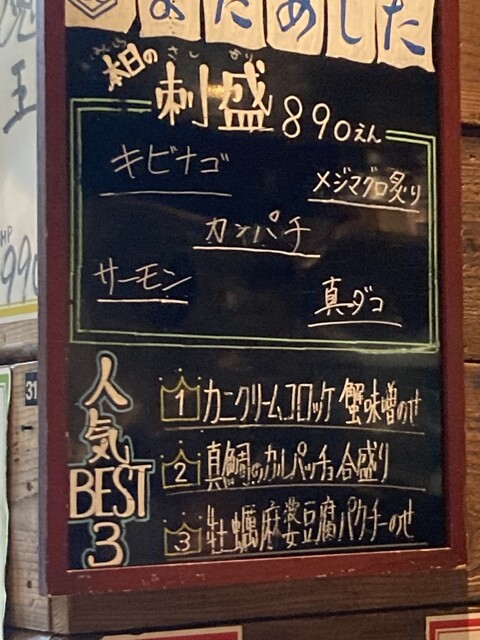 おためした
本日の
さしもり
刺盛 890えん
キビナゴ
メジマグロ炙り
カンパチ
サーモン
真ダコ
人気BEST3
1 カニクリームコロッケ 蟹味噌のせ
2 真鯛のカルパッチョ合盛り
3 牡蠣麻婆豆腐パクチーのせ
王
990
31